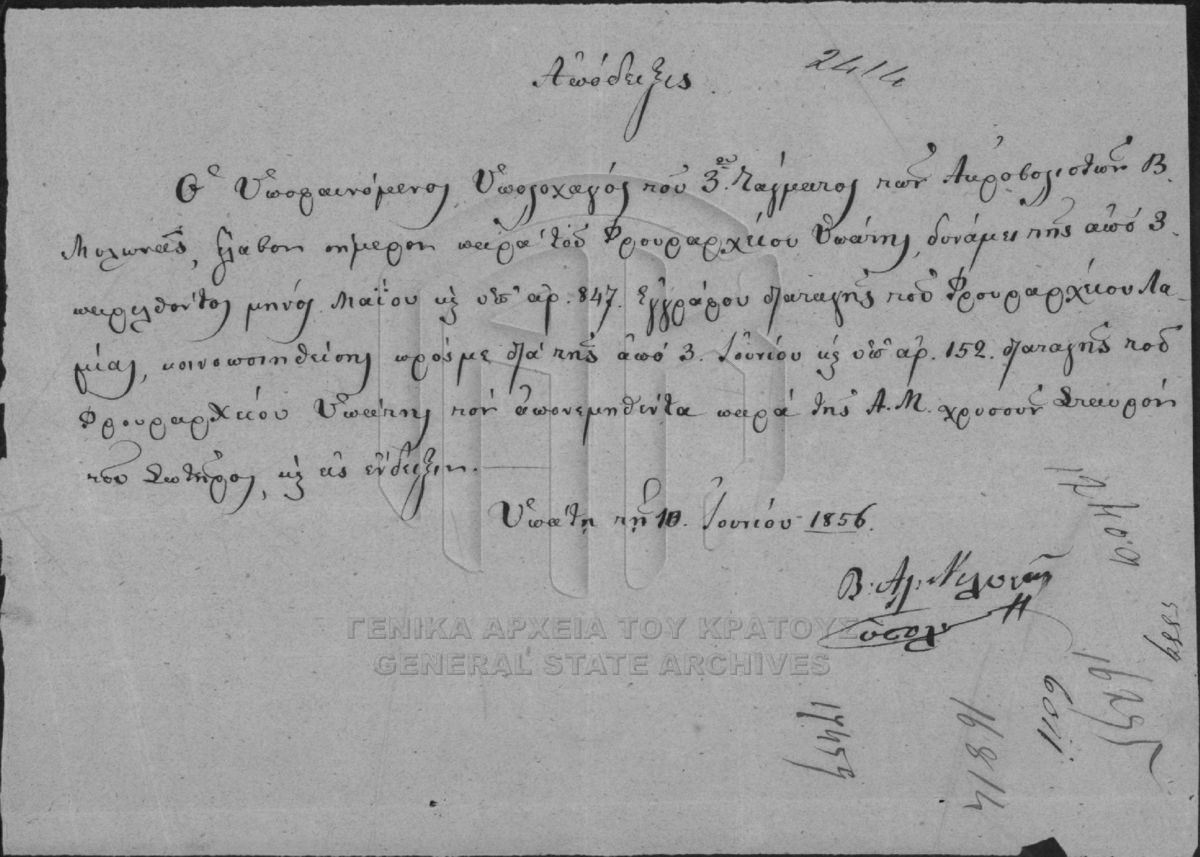 Ἀπόδειξις 2414
Ὁ Ὑποφαινόμενος Ὑπολοχαγός τοῦ 3ου Τάγματος τῶν Ἀκροβολιστῶν Β.
Μυλωνᾶς, ἔλαβον σήμερον παρά τοῦ Φρουραρχείου Ὑπάτης, δυνάμει τῆς ἀπό 3.
παρελθόντος μηνός Μαΐου κ ὑπ' ἀρ. 847. ἐγγράφου διαταγῆς τοῦ Φρουραρχείου Λα-
μίας, κοινοποιηθείσης πρός με διά τῆς ἀπό 3. Ἰουνίου κ ὑπ' ἀρ. 152. διαταγῆς τοῦ
Φρουραρχείου Ὑπάτης τόν ἀπονεμηθέντα παρά τῆς Α.Μ. χρυσοῦν Σταυρόν
τοῦ Σωτῆρος, κ εἰς ἔνδειξιν.
Ὑπάτη τῇ 10. Ἰουνίου 1856.
Β. Αγ. Μυλωνᾶς
ΓΕΝΙΚΑ ΑΡΧΕΙΑ ΤΟΥ ΚΡΑΤΟΥΣ
GENERAL STATE ARCHIVES
6011
16814
17457